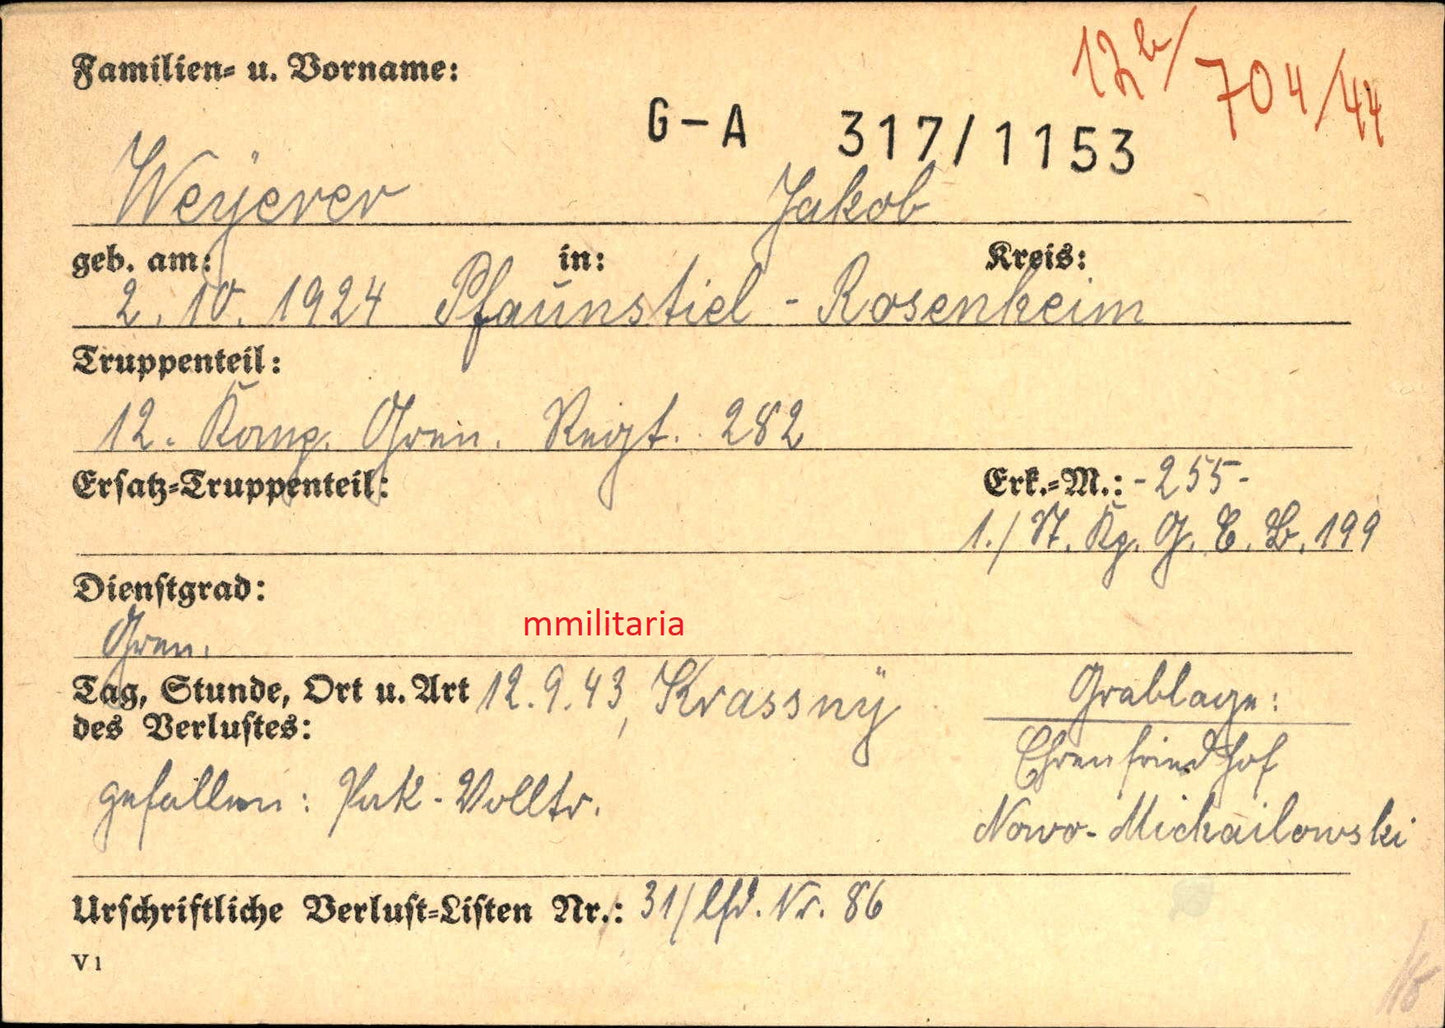 12b/704/44
Familien- u. Vorname:
G-A 317/1153
Weyerer Jakob
geb. am: in: Kreis:
2. 10. 1924 Pfaunstiel - Rosenheim
Truppenteil:
12. Komp. Gren. Regt. 282
Ersatz-Truppenteil: Erk.-M.: -255-
1./St. Kp. G. E. B. 199
Dienstgrad:
Gren.
mmilitaria
Tag, Stunde, Ort u. Art 12.9.43, Krassny Grablage:
des Verlustes: Ehrenfriedhof
gefallen: Pak-Volltr. Nowo-Michailowski
Urschriftliche Verlust-Listen Nr.: 31/lfd. Nr. 86
V 1